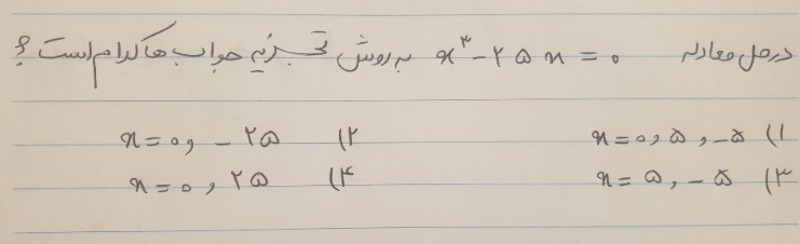 در حل معادله x³ - ۲۵x = ۰ به روش تجزیه جواب ها کدام است؟
۱) x = ۰ و ۵ و -۵ ۲) x = ۰ و -۲۵
۳) x = ۵ و -۵ ۴) x = ۰ و ۲۵